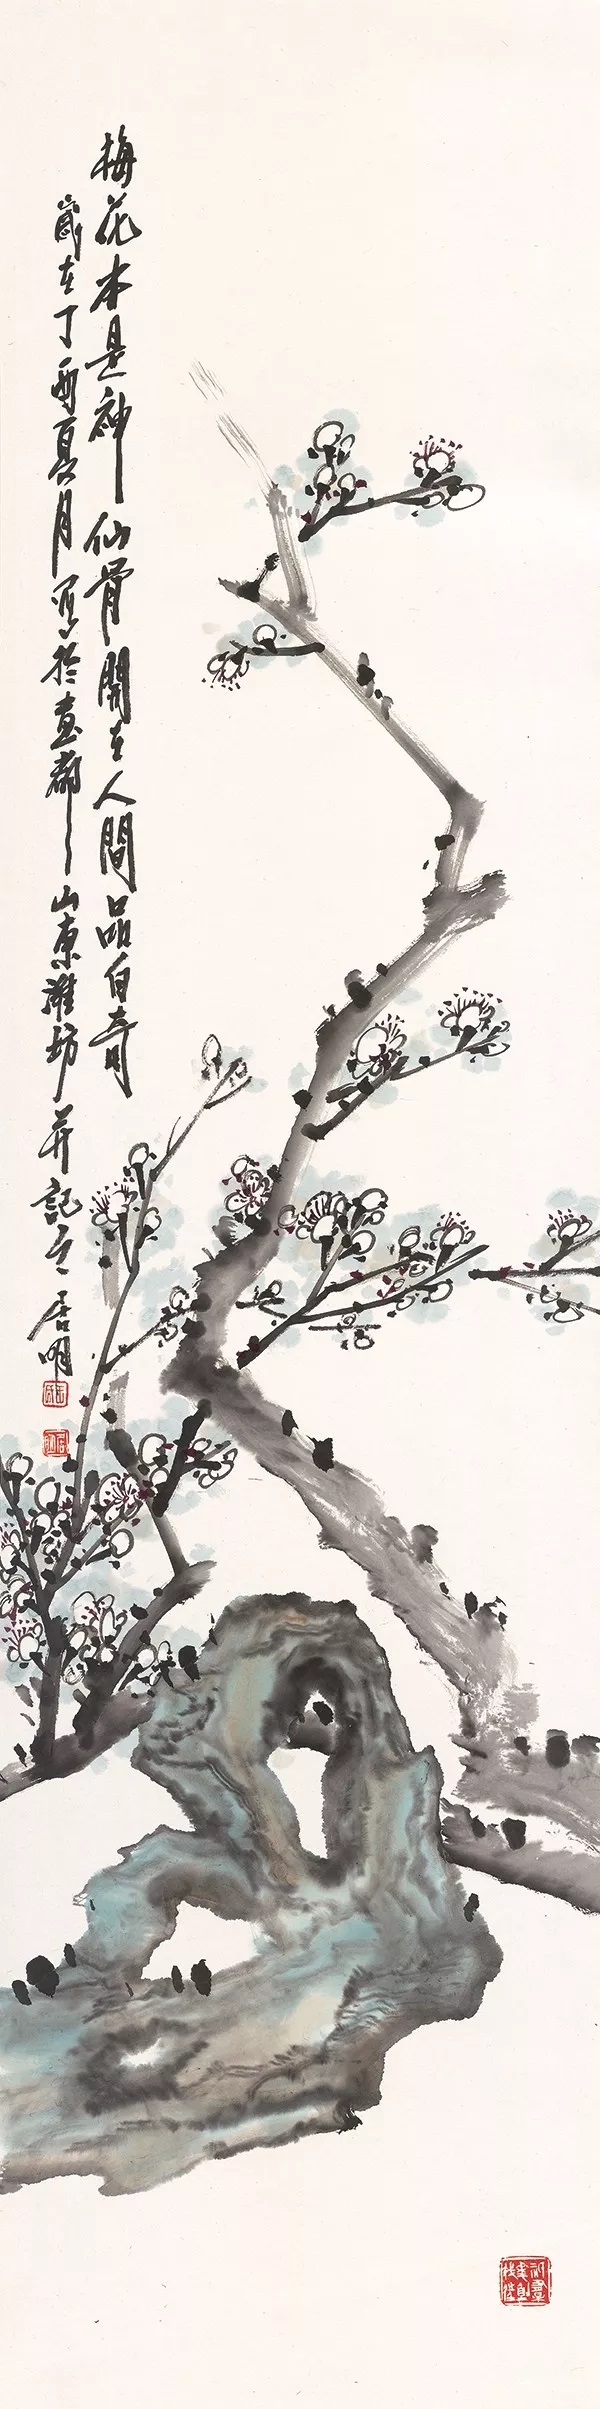 梅花本是神仙骨開在人間品自奇
歲在丁酉夏月寫於畫都山東濰坊并記之居明